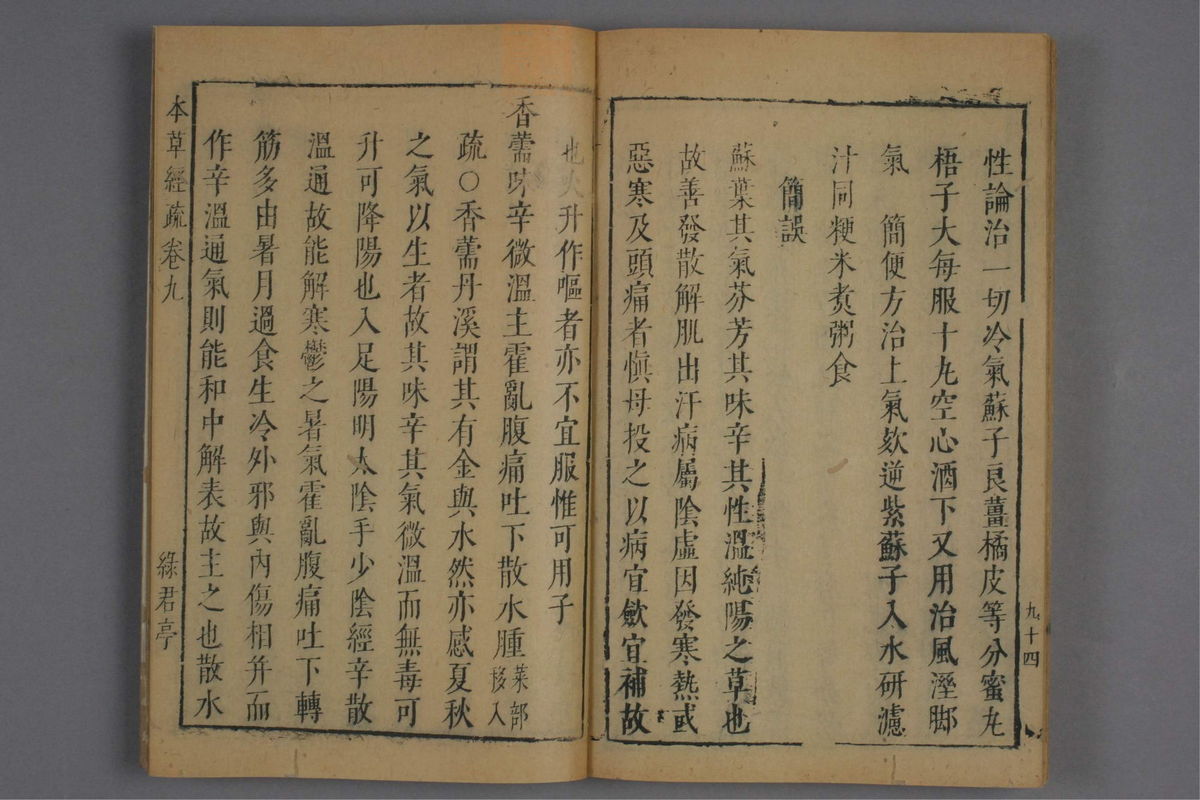 九十四
性論治一切冷氣蘇子良薑橘皮等分蜜丸
梧子大每服十九空心酒下又用治風溼脚
氣　簡便方治上氣欬逆紫蘇子入水研濾
汁同粳米煑粥食
簡誤
蘇葉其氣芬芳其味辛其性溫純陽之草也
故善發散解肌出汗病屬陰虛因發寒熱或
惡寒及頭痛者愼毋投之以病宜歛宜補故
也火升作嘔者亦不宜服惟可用子
香薷味辛微溫主霍亂腹痛吐下散水腫菜部移入
疏○香薷丹溪謂其有金與水然亦感夏秋
之氣以生者故其味辛其氣微溫而無毒可
升可降陽也入足陽明太陰手少陰經辛散
溫通故能解寒鬱之暑氣霍亂腹痛吐下轉
筋多由暑月過食生冷外邪與內傷相并而
作辛溫通氣則能和中解表故主之也散水
本草經疏卷九
綠君亭